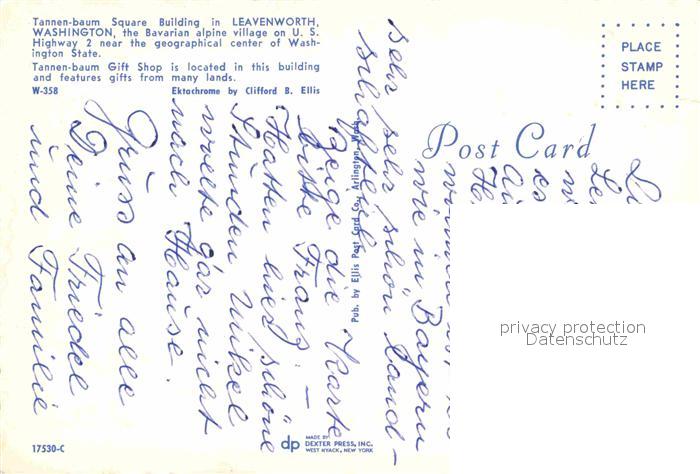 Tannen-baum Square Building in LEAVENWORTH,
WASHINGTON, the Bavarian alpine village on U. S.
Highway 2 near the geographical center of Wash-
ington State.
Tannen-baum Gift Shop is located in this building
and features gifts from many lands.
W-358 Ektachrome by Clifford B. Ellis
PLACE
STAMP
HERE
Post Card
Pub. by Ellis Post Card Co., Arlington, Wash.
wie in "Bayern
sehr sehr schön land-
schaftlich
Zeige die Karte
bitte Franz. -
Hatten hier schöne
Stunden Unkel
wollte gar nicht
nach Hause.
Gruss an alle
Deine Friedel
und Familie
privacy protection
Datenschutz
17530-C
dp MADE BY
DEXTER PRESS, INC.
WEST NYACK, NEW YORK